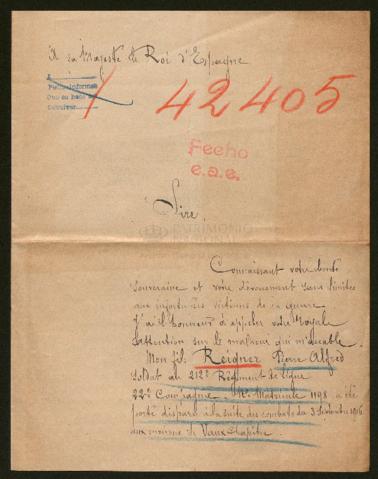 A sa Majesté le Roi d'Espagne
1 42405
Fecho
e.a.e.
Sire,
PATRIMONIO
Connaissant votre bonté
souveraine et votre dévouement sans limites
aux infortunées victimes de la guerre
J'ai l'honneur d'appeler votre Royale
attention sur le malheur qui m'accable.
Mon fils Reigner Pierre Alfred
soldat au 212e Régiment de ligne
22e Compagnie. No Matricule 1198 a été
porté disparu à la suite des combats du 3 Septembre 1916
aux environs de Vaux-Chapitre.